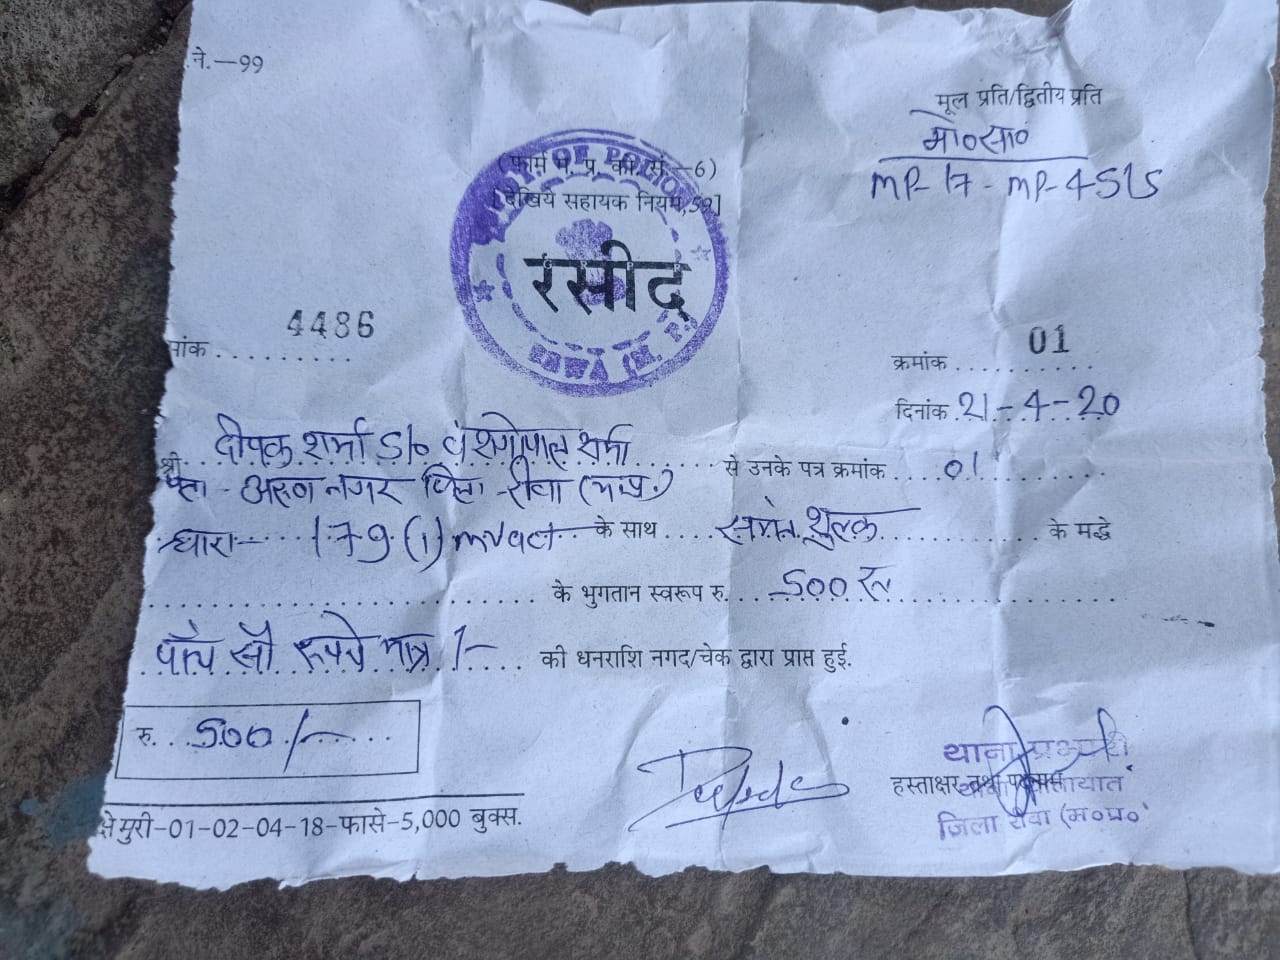 ने.—99
मूल प्रति/द्वितीय प्रति
मो०सा०
MP-17-MP-4515
(फार्म म. प्र. को. सं.—6)
[देखिये सहायक नियम,59]
रसीद
REWA (M. P.)
4486
01
क्रमांक
दिनांक 21-4-20
श्री दीपक शर्मा S/o वंशगोपाल शर्मा से उनके पत्र क्रमांक 01
पता - अरुण नगर जिला - रीवा (म.प्र.)
धारा - 179 (1) mv act के साथ समन शुल्क के मद्धे
के भुगतान स्वरूप रु. 500 रु
पाँच सौ रूपये मात्र /- की धनराशि नगद/चेक द्वारा प्राप्त हुई.
रु. 500/-
हस्ताक्षर तथा पदनाम
थाना प्रभारी
थाना यातायात
जिला रीवा (म०प्र०)
क्षेमुरी-01-02-04-18-फासे-5,000 बुक्स.